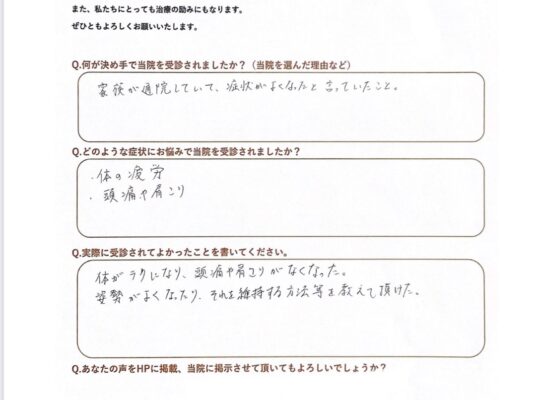 また、私たちにとっても治療の励みにもなります。
ぜひともよろしくお願いいたします。
Q.何が決め手で当院を受診されましたか？（当院を選んだ理由など）
家族が通院していて、症状がよくなったと言っていたこと。
Q.どのような症状にお悩みで当院を受診されましたか？
・体の疲労
・頭痛や肩こり
Q.実際に受診されてよかったことを書いてください。
体がラクになり、頭痛や肩こりがなくなった。
姿勢がよくなったり、それを維持する方法等を教えて頂けた。
Q.あなたの声をHPに掲載、当院に掲示させて頂いてもよろしいでしょうか？